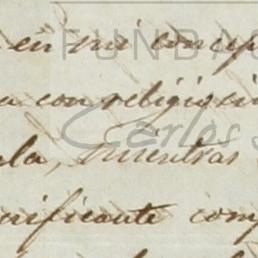 en mi concep
FUNDA
a con religiosi
Carlos
la, mientras
nificante com